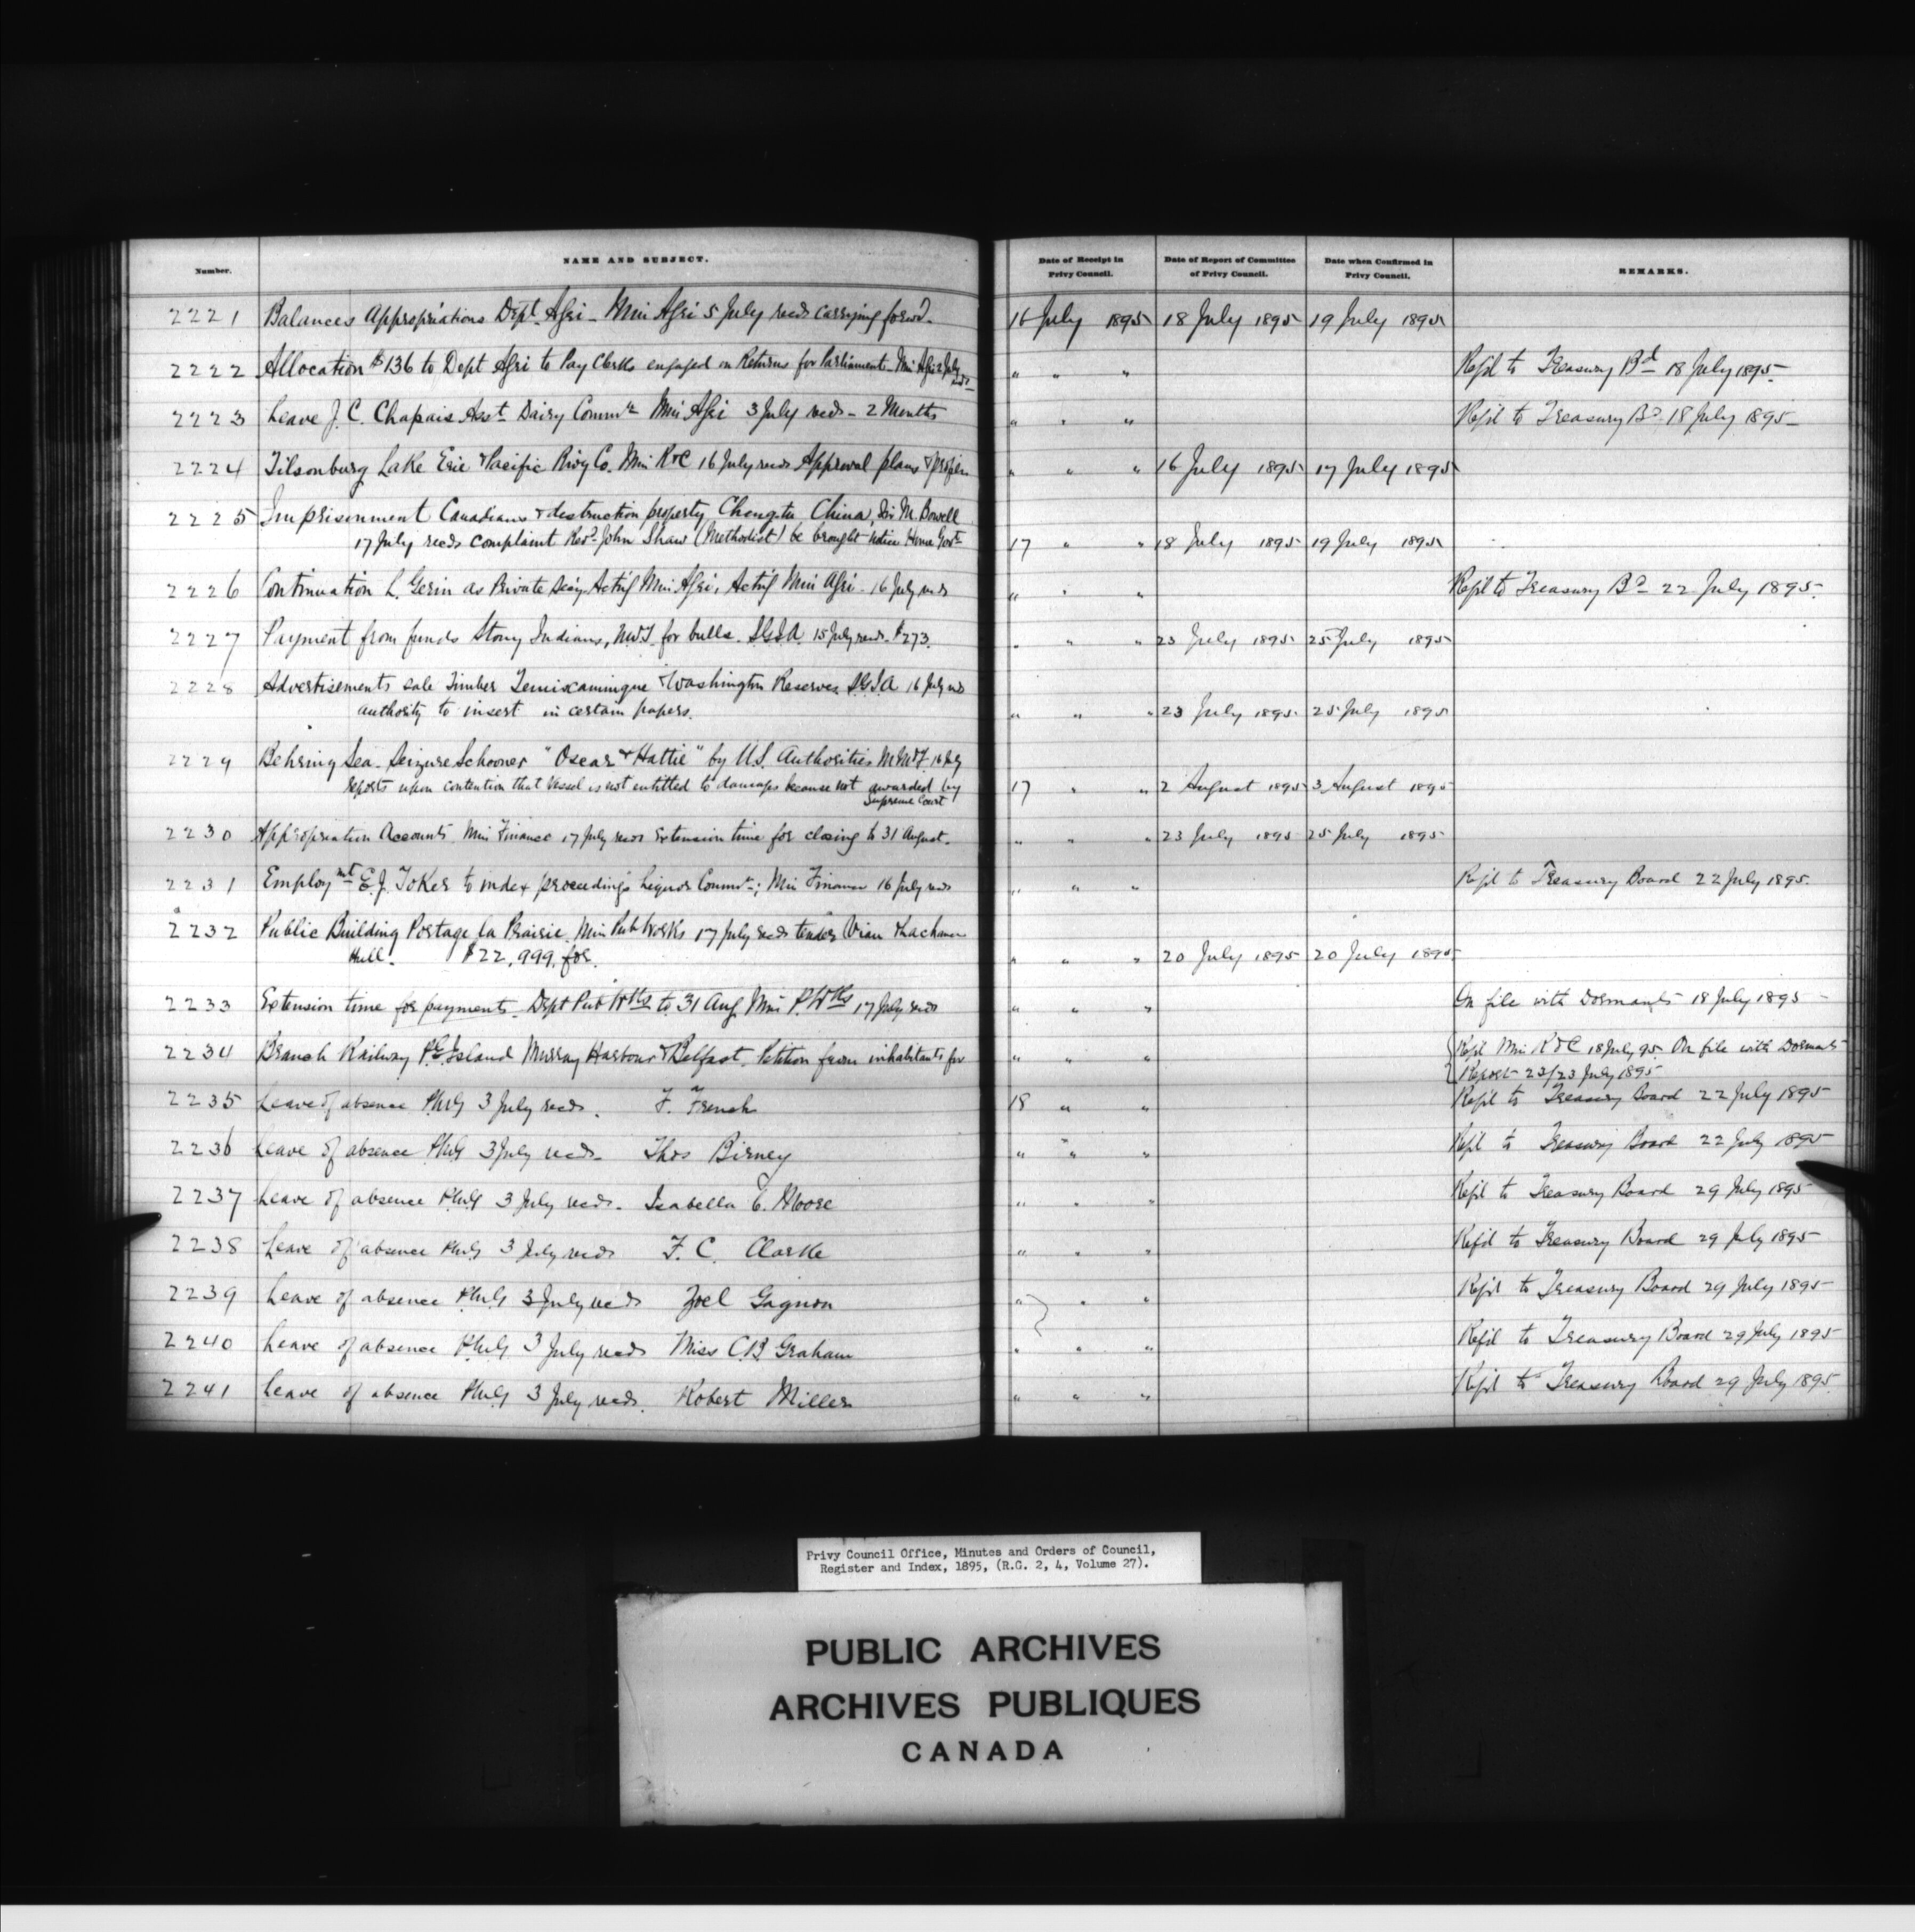 Number. NAME AND SUBJECT. Date of Receipt in Privy Council. Date of Report of Committee of Privy Council. Date when Confirmed in Privy Council. REMARKS.
2221 Balances Appropriations Dept. Agri - Min Agri 5 July recds carrying forwd. 16 July 1895 18 July 1895 19 July 1895
2222 Allocation $136 to Dept Agri to Pay Clerks engaged on Returns for Parliament - Min Agri 2 July recds " " " Refd to Treasury Bd 18 July 1895
2223 Leave J. C. Chapais Asst Dairy Commr Min Agri 3 July recds - 2 Months " " " Refd to Treasury Bd 18 July 1895
2224 Tilsonburg Lake Erie & Pacific Rwy Co. Min R&C 16 July recds Approval plans & " " " 16 July 1895 17 July 1895
2225 Imprisonment Canadians & destruction property Chengtu China, Sir M. Bowell
17 July recds complaint Revd John Shaw (Methodist) be brought notice Home Govt 17 " " 18 July 1895 19 July 1895
2226 Continuation L. Gerin as Private Secy Actg Min Agri, Actg Min Agri - 16 July recds " " " Refd to Treasury Bd 22 July 1895.
2227 Payment from funds Stony Indians, N.W.T. for bulls. S.G.I.A. 15 July recds. $273. " " " 23 July 1895 25 July 1895
2228 Advertisements sale Timber Temiscamingue & Washington Reserves S.G.I.A 16 July recds
authority to insert in certain papers. " " " 23 July 1895 25 July 1895
2229 Behring Sea. Seizure Schooner "Oscar & Hattie" by U.S. Authorities M.M&F. 16 July
reports upon contention that Vessel is not entitled to damages because not awarded by
Supreme Court 17 " " 2 August 1895 3 August 1895
2230 Appropriation Accounts. Min Finance 17 July recds Extension time for closing to 31 August. " " " 23 July 1895 25 July 1895
2231 Employmt E.J. Toker to index proceedings Liquor Commn; Min Finance 16 July recds " " " Refd to Treasury Board 22 July 1895.
2232 Public Building Portage la Prairie. Min Pub Works 17 July recds tender Vian &
Hull. $22,999, for. " " " 20 July 1895 20 July 1895
2233 Extension time for payments. Dept Pub Wks to 31 Aug. Min P. Wks 17 July recds " " " On file with Dormants 18 July 1895 -
2234 Branch Railway P.E. Island Murray Harbour & Belfast. Petition from inhabitants for " " " Refd Min R&C 18 July 95. On file with Dormants
Report 23/23 July 1895
2235 Leave of absence PMG 3 July recds. F. French 18 " " Refd to Treasury Board 22 July 1895
2236 Leave of absence PMG 3 July recds - Thos Birney " " " Refd to Treasury Board 22 July 1895
2237 Leave of absence PMG 3 July recds. Isabella C. Moore " " " Refd to Treasury Board 29 July 1895
2238 Leave of absence PMG 3 July recds F. C. Clarke " " " Refd to Treasury Board 29 July 1895
2239 Leave of absence PMG 3 July recds Joel Gagnon " " " Refd to Treasury Board 29 July 1895
2240 Leave of absence PMG 3 July recds Miss C.B. Graham " " " Refd to Treasury Board 29 July 1895
2241 Leave of absence PMG 3 July recds. Robert Miller " " " Refd to Treasury Board 29 July 1895
Privy Council Office, Minutes and Orders of Council,
Register and Index, 1895, (R.G. 2, 4, Volume 27).
PUBLIC ARCHIVES
ARCHIVES PUBLIQUES
CANADA